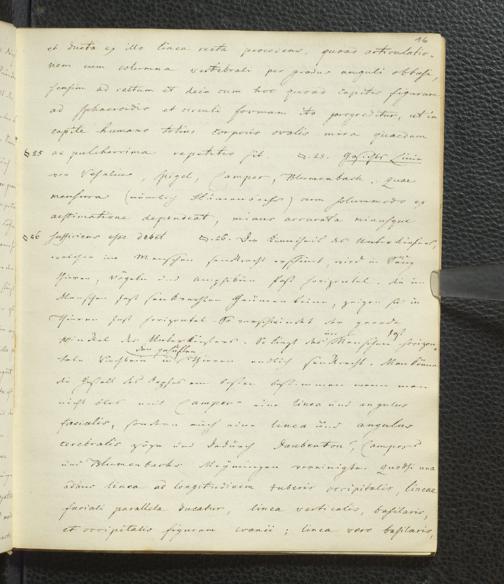 16
et ducta ex illo linea recta procedens, quoad articulatio-
nem cum columna vertebrali per gradus anguli obtusi,
sensim ad rectum et dein cum hoc quoad capitis figuram
ad sphaeroidis et circuli formam ita progreditur, ut in
capite humano totius corporis ovalis mira quaedam
§ 25 ac pulcherrima repetitio sit. 25. Gesichts Linie
von Vesalius, Spigel, Camper, Blumenbach. Quae
mensura (nämlich) cum solummodo ex
aestimatione dependeat, minus accurata minusque
§ 26 sufficiens esse debet. 26. Der des Unterkiefers,
welcher im Menschen senkrecht, wird in
Thieren, Vögeln und Amphibien fast horizontal. die im
Menschen fast senkrechten Gaumenbeine, zeigen sich in
Thieren fast horizontal. So verschwindet der gerade
Winkel des Unterkiefers. So liegt das im Menschen fast horizon-
tale in den Thieren endlich senkrecht. Man könne
die Gestalt des Kopfes am besten bestimmen wenn man
nicht allein mit Camper eine linea und angulus
facialis, sondern auch eine linea und angulus
cerebralis zöge und dadurch Daubenton's, Campers
und Blumenbachs Meynungen vereinigte. Quodsi una
linea ad longitudinem tuberis occipitalis, lineae
faciali parallela ducatur, linea verticalis, basilaris,
et occipitalis figuram cranii; linea vero basilaris,